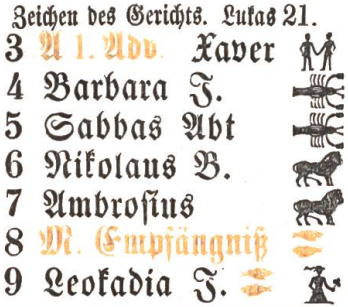 Zeichen des Gerichts. Lukas 21.
3 A 1. Adv. Xaver
4 Barbara J.
5 Sabbas Abt
6 Nikolaus B.
7 Ambrosius
8 M. Empfängniß
9 Leokadia J.